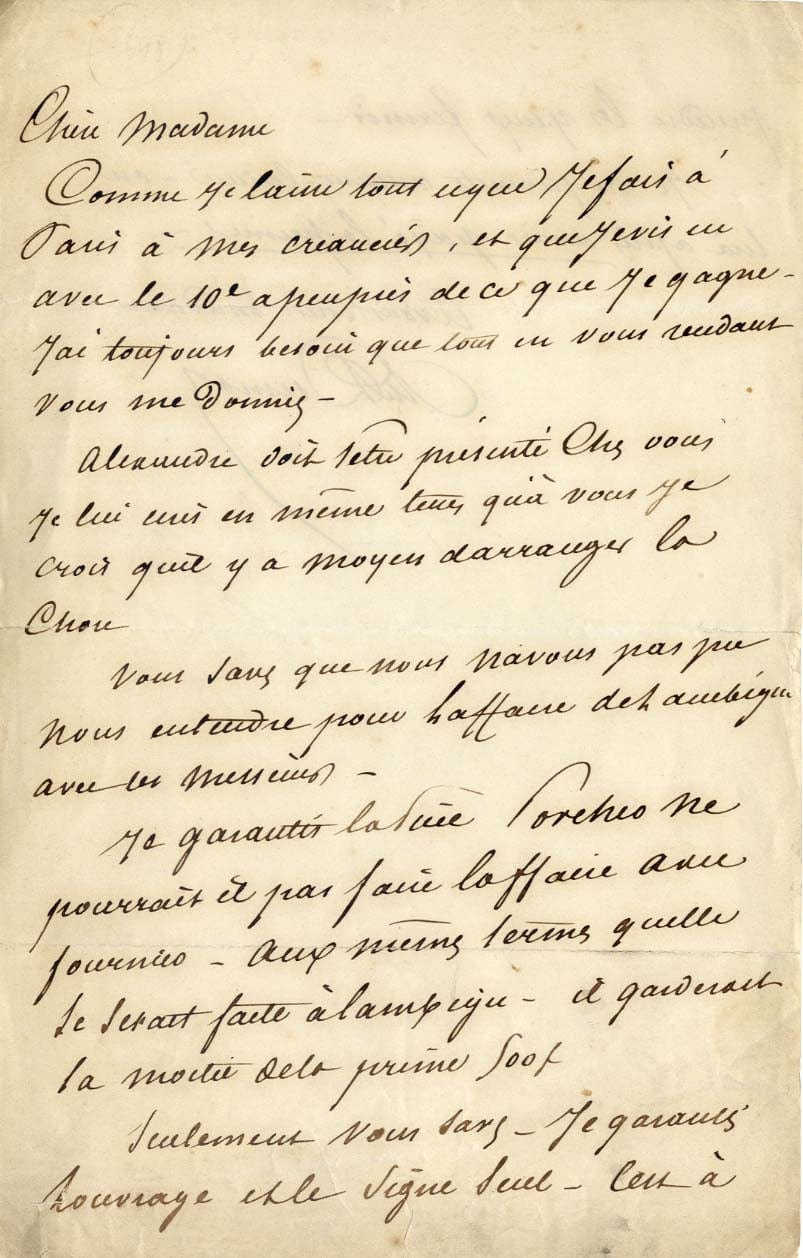 Chère Madame
Comme Je laisse tout ce que Je fais à
Paris à mes creanciers, et que Je vis ici
avec le 10e apeuprès de ce que Je gagne –
J'ai toujours besoin que tout en vous rendant
vous me Donniez –
Alexandre doit setre présenté Chez vous
Je lui ecris en même tems qu'à vous Je
crois quil y a moyen darranger la
Chose
Vous Savez que nous navons pas pu
nous entendre pour laffaire de lambigu
avec ces messieurs –
Je garantis la Pièce Porcher ne
pourrait il pas faire laffaire avec
fournier – Aux mêmes termes quelle
Se Serait faite à lambigu – il garderait
la moitié de la prime 500f
Seulement vous Savez – Je garantis
louvrage et le Signe Seul – Cest à